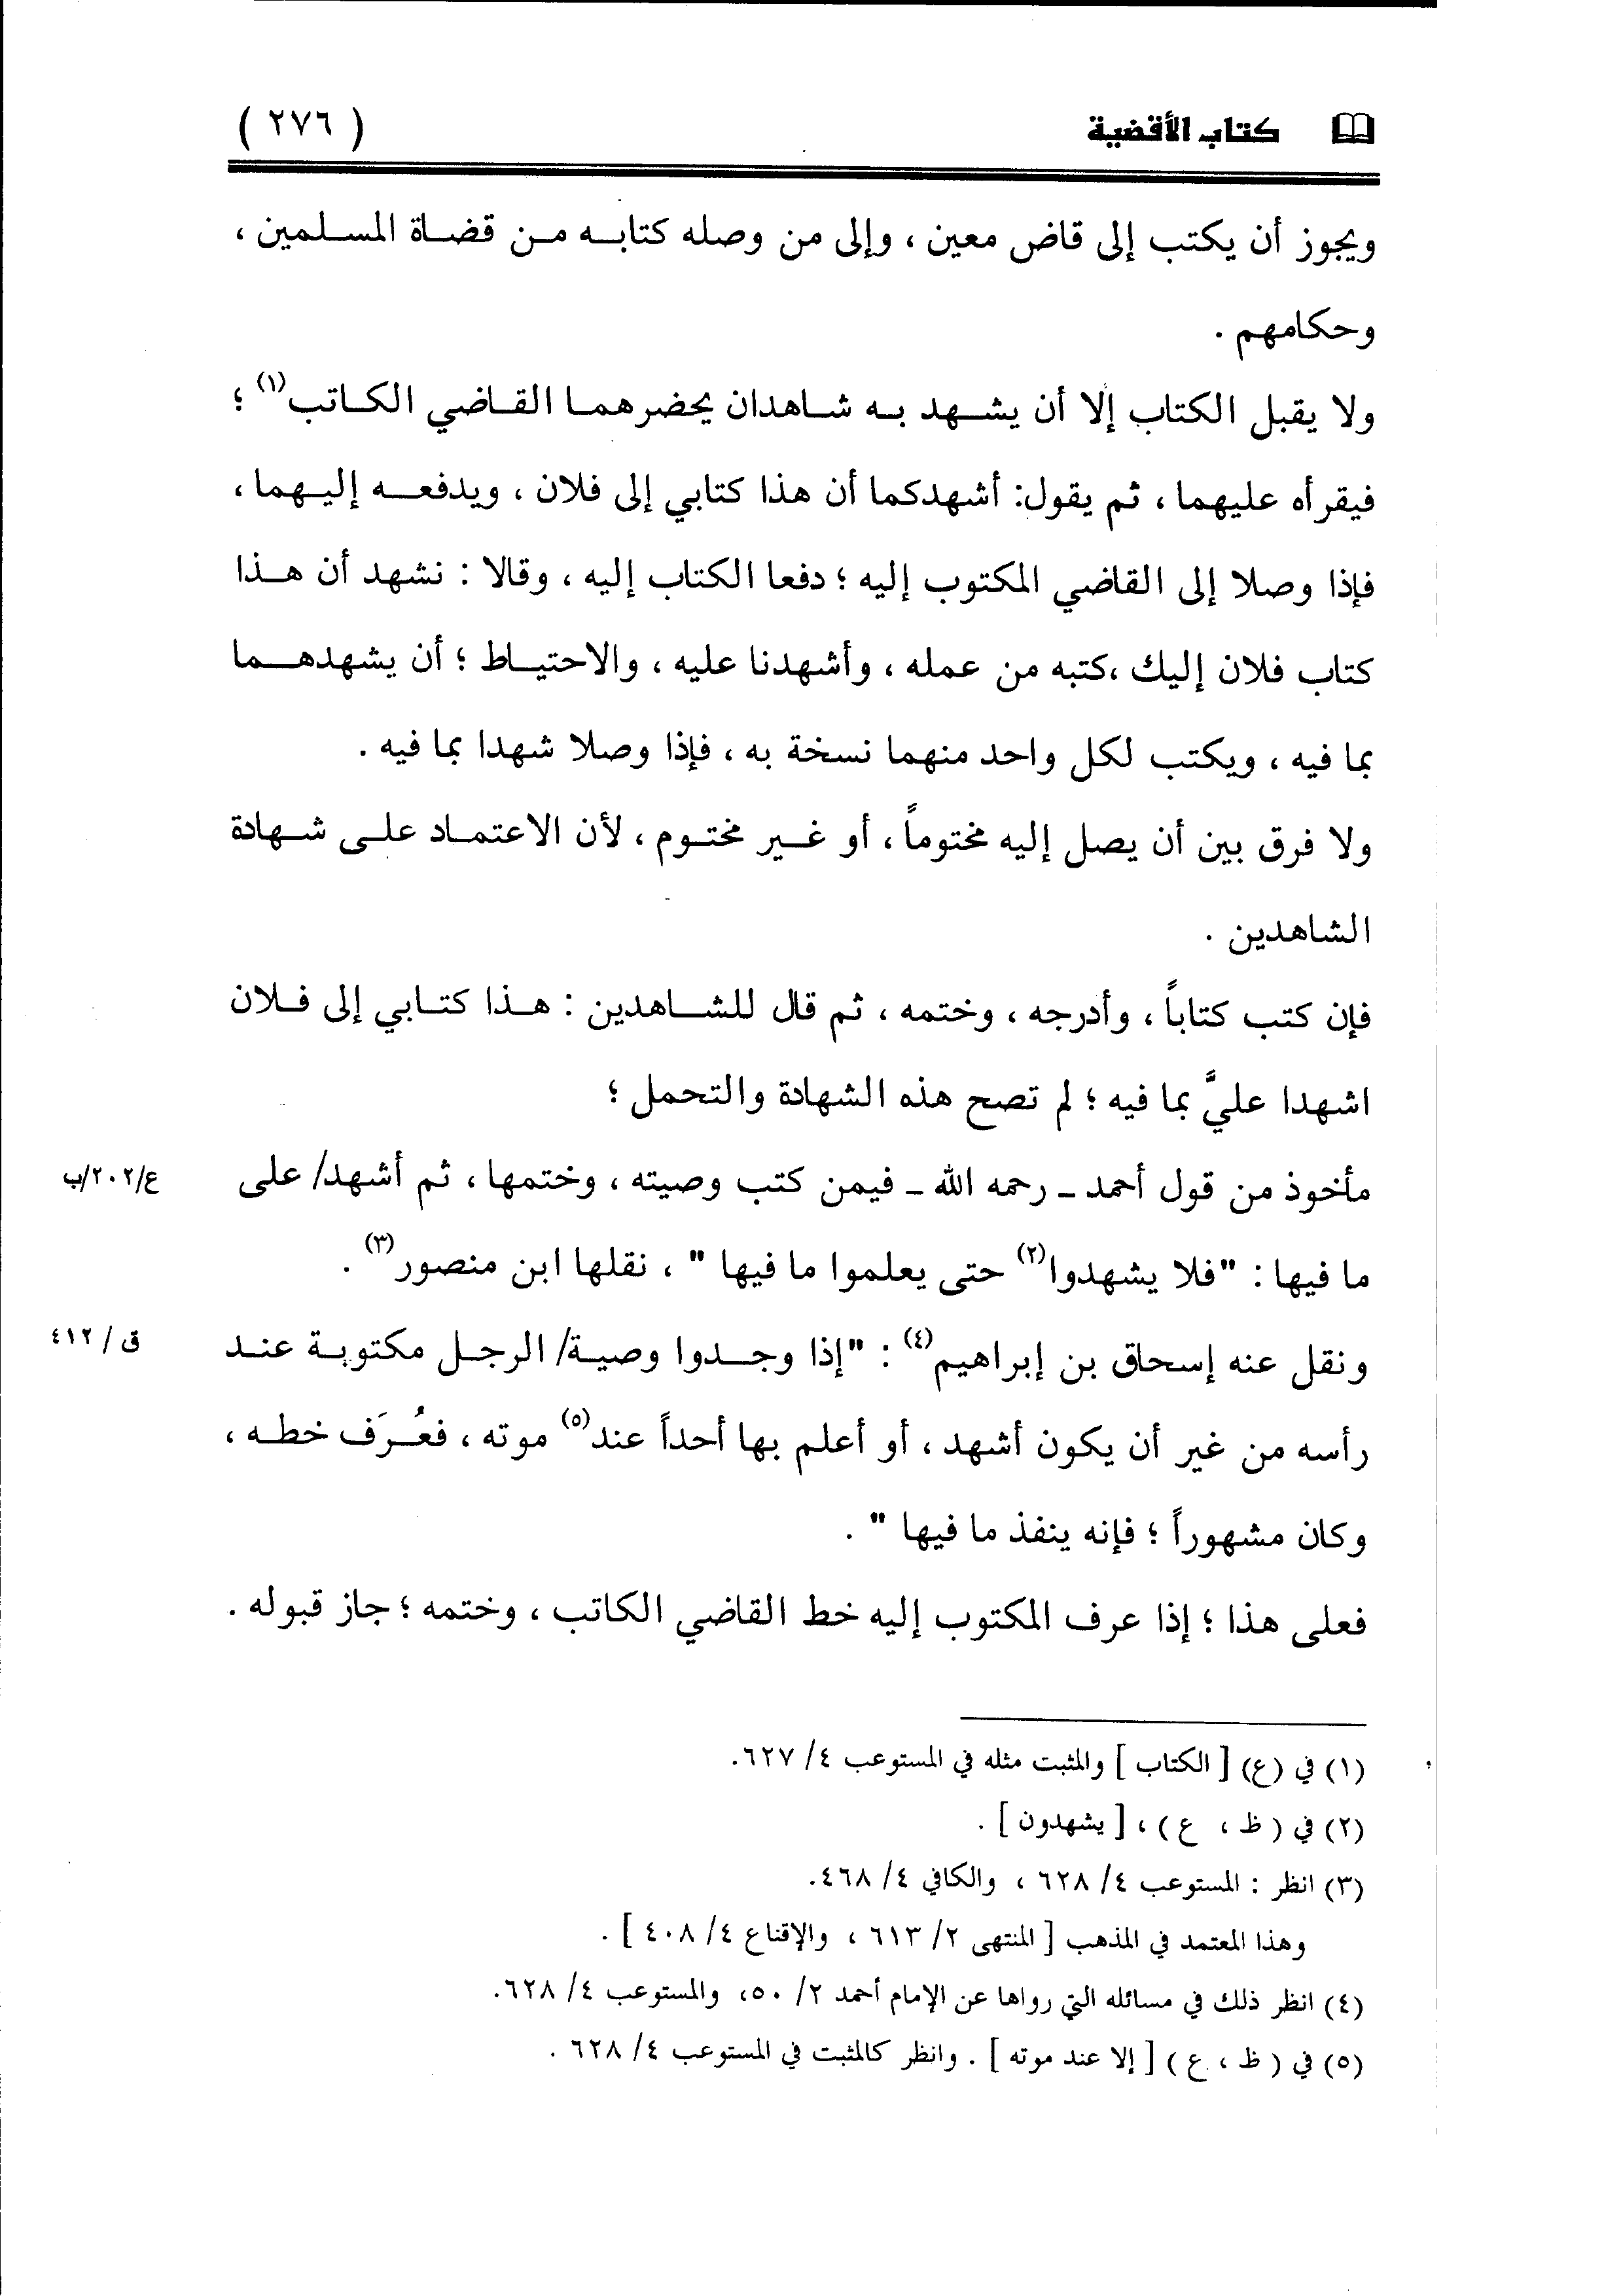 كتاب الأقضية ( ٢٧٦ )
ويجوز أن يكتب إلى قاض معين ، وإلى من وصله كتابه من قضاة المسلمين ،
وحكامهم .
ولا يقبل الكتاب إلا أن يشهد به شاهدان يحضرهما القاضي الكاتب(١) ؛
فيقرأه عليهما ، ثم يقول: أشهدكما أن هذا كتابي إلى فلان ، ويدفعه إليهما ،
فإذا وصلا إلى القاضي المكتوب إليه ؛ دفعا الكتاب إليه ، وقالا : نشهد أن هذا
كتاب فلان إليك ،كتبه من عمله ، وأشهدنا عليه ، والاحتياط ؛ أن يشهدهما
بما فيه ، ويكتب لكل واحد منهما نسخة به ، فإذا وصلا شهدا بما فيه .
ولا فرق بين أن يصل إليه مختوماً ، أو غير مختوم ، لأن الاعتماد على شهادة
الشاهدين .
فإن كتب كتاباً ، وأدرجه ، وختمه ، ثم قال للشاهدين : هذا كتابي إلى فلان
اشهدا عليَّ بما فيه ؛ لم تصح هذه الشهادة والتحمل ؛
مأخوذ من قول أحمد ـ رحمه الله ـ فيمن كتب وصيته ، وختمها ، ثم أشهد/ على ع/٢٠٢/ب
ما فيها : "فلا يشهدوا(٢) حتى يعلموا ما فيها " ، نقلها ابن منصور(٣) .
ونقل عنه إسحاق بن إبراهيم(٤) : "إذا وجدوا وصية/ الرجل مكتوبة عند ق / ٤١٢
رأسه من غير أن يكون أشهد ، أو أعلم بها أحداً عند(٥) موته ، فعُرَف خطه ،
وكان مشهوراً ؛ فإنه ينفذ ما فيها " .
فعلى هذا ؛ إذا عرف المكتوب إليه خط القاضي الكاتب ، وختمه ؛ جاز قبوله .
(١) في (ع) [ الكتاب ] والمثبت مثله في المستوعب ٤/ ٦٢٧.
(٢) في ( ظ ، ع ) ، [ يشهدون ] .
(٣) انظر : المستوعب ٤/ ٦٢٨ ، والكافي ٤/ ٤٦٨.
وهذا المعتمد في المذهب [ المنتهى ٢/ ٦١٣ ، والإقناع ٤/ ٤٠٨ ] .
(٤) انظر ذلك في مسائله التي رواها عن الإمام أحمد ٢/ ٥٠، والمستوعب ٤/ ٦٢٨.
(٥) في ( ظ ، ع ) [ إلا عند موته ] . وانظر كالمثبت في المستوعب ٤/ ٦٢٨ .